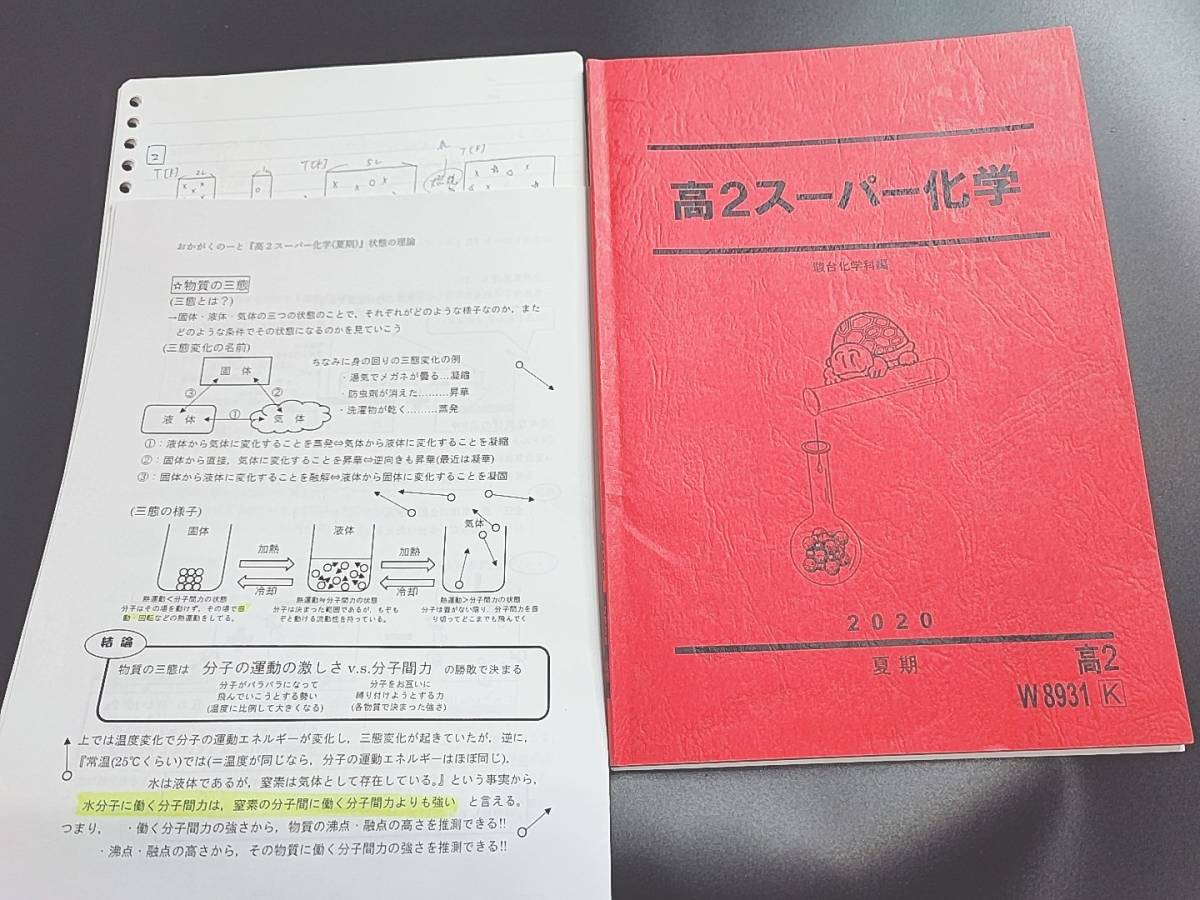 2
T[K]
2L
T[K]
5L
T[K]
おかがくのーと『高2スーパー化学(夏期)』状態の理論
☆物質の三態
(三態とは?)
→固体・液体・気体の三つの状態のことで，それぞれがどのような様子なのか，また
どのような条件でその状態になるのかを見ていこう
(三態変化の名前)
ちなみに身の回りの三態変化の例
固 体
・湯気でメガネが曇る…凝縮
③
②
・防虫剤が消えた………昇華
液 体
①
気 体
・洗濯物が乾く………蒸発
①：液体から気体に変化することを蒸発⇔気体から液体に変化することを凝縮
②：固体から直接，気体に変化することを昇華⇔逆向きも昇華(最近は凝華)
③：固体から液体に変化することを融解⇔液体から固体に変化することを凝固
(三態の様子)
固体
加熱
冷却
液体
加熱
冷却
気体
熱運動＜分子間力の状態
分子はその場を動けず，その場で振
動・回転などの熱運動をしてる。
熱運動≒分子間力の状態
分子は決まった範囲であるが，もぞも
ぞと動ける流動性を持っている。
熱運動＞分子間力の状態
分子は蓋がない限り，分子間力を振
り切ってどこまでも飛んでく
結 論
物質の三態は 分子の運動の激しさ v.s.分子間力 の勝敗で決まる
分子がバラバラになって
飛んでいこうとする勢い
(温度に比例して大きくなる)
分子をお互いに
縛り付けようとする力
(各物質で決まった強さ)
上では温度変化で分子の運動エネルギーが変化し，三態変化が起きていたが，逆に，
『常温(25℃くらい)では(＝温度が同じなら，分子の運動エネルギーはほぼ同じ)，
水は液体であるが，窒素は気体として存在している。』という事実から，
水分子に働く分子間力は，窒素の分子間に働く分子間力よりも強い と言える。
つまり， ・働く分子間力の強さから，物質の沸点・融点の高さを推測できる!!
・沸点・融点の高さから，その物質に働く分子間力の強さを推測できる!!
高2スーパー化学
駿台化学科編
2020
夏期
高2
W8931 K